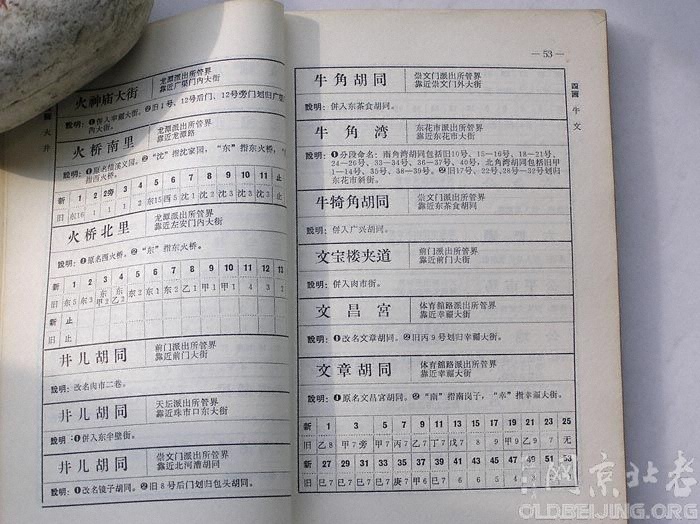 四画 火 井
火神庙大街
龙潭派出所管界
靠近广渠门内大街
說明:❶併入幸福大街。❷旧1号、12号后门、12号旁门划归广渠
门内大街。
火桥南里
龙潭派出所管界
靠近龙潭路
說明:❶原名悟溪义园。“沈”指沈家园,“东”指东火桥,
指西火桥。
新 1 2 2旁 3 4 5 6 7 8 9 10 11 止
火桥北里
龙潭派出所管界
靠近左安门内大街
說明:❶原名西火桥。❷“东”指东火桥。
新 1 2 3 4 5 6 7 8 9 10 11 12 13
新 止
旧 止
井儿胡同
前门派出所管界
靠近前门大街
說明:改名肉市二巷。
井儿胡同
天坛派出所管界
靠近珠市口东大街
說明:併入东半壁街。
井儿胡同
崇文门派出所管界
靠近北河漕胡同
說明:❶改名镜子胡同。❷旧8号后门划归包头胡同。
—53—
四画 牛 文
牛角胡同
崇文门派出所管界
靠近崇文门外大街
說明:併入东茶食胡同。
牛角湾
东花市派出所管界
靠近东花市大街
說明:❶分段命名:南角湾胡同包括旧10号、15—16号、18—21号、
24—26号、33—34号、36—37号、40号,北角湾胡同包括旧甲
1—14号、35号、38—39号。❷旧17号、22号、28号—32号划归
东花市斜街。
牛犄角胡同
崇文门派出所管界
靠近东茶食胡同
說明:併入广兴胡同。
文宝楼夹道
前门派出所管界
靠近前门大街
說明:併入肉市街。
文昌宫
体育舘路派出所管界
靠近幸福大街
說明:❶改名文章胡同。❷旧丙9号划归幸福大街。
文章胡同
体育舘路派出所管界
靠近幸福大街
說明:❶原名文昌宫胡同。❷“南”指南岗子,“幸”指幸福大街。
新 1 3 5 7 9 11 13 15 17 19 21 23 25
旧 乙8 甲7 旁7 甲7 丙7 乙7 丁7 戊7 8 9 乙9 7 无
新 27 29 31 33 35 37 39 41 43 45 47 49 51 53
老北京网
OLDBEIJING.ORG